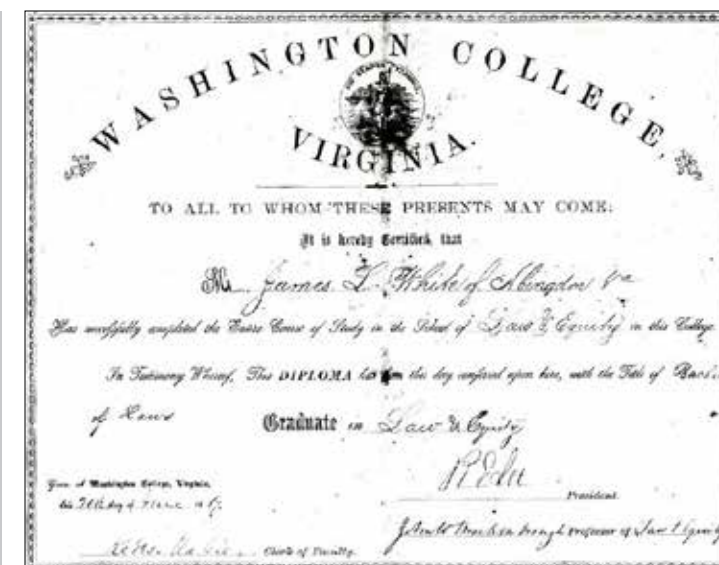 WASHINGTON COLLEGE,
VIRGINIA.
TO ALL TO WHOM THESE PRESENTS MAY COME:
It is hereby Certified, that
Mr. James L. White of Abingdon Va
Has successfully completed the Entire Course of Study in the School of Law & Equity in this College.
In Testimony Whereof, This DIPLOMA has on this day conferred upon him, with the Title of
of Laws
Graduate in Law & Equity
Washington College, Virginia,
this day of
R E Lee
President.
Clerk of Faculty.
John W Brockenbrough Professor of Law & Equity